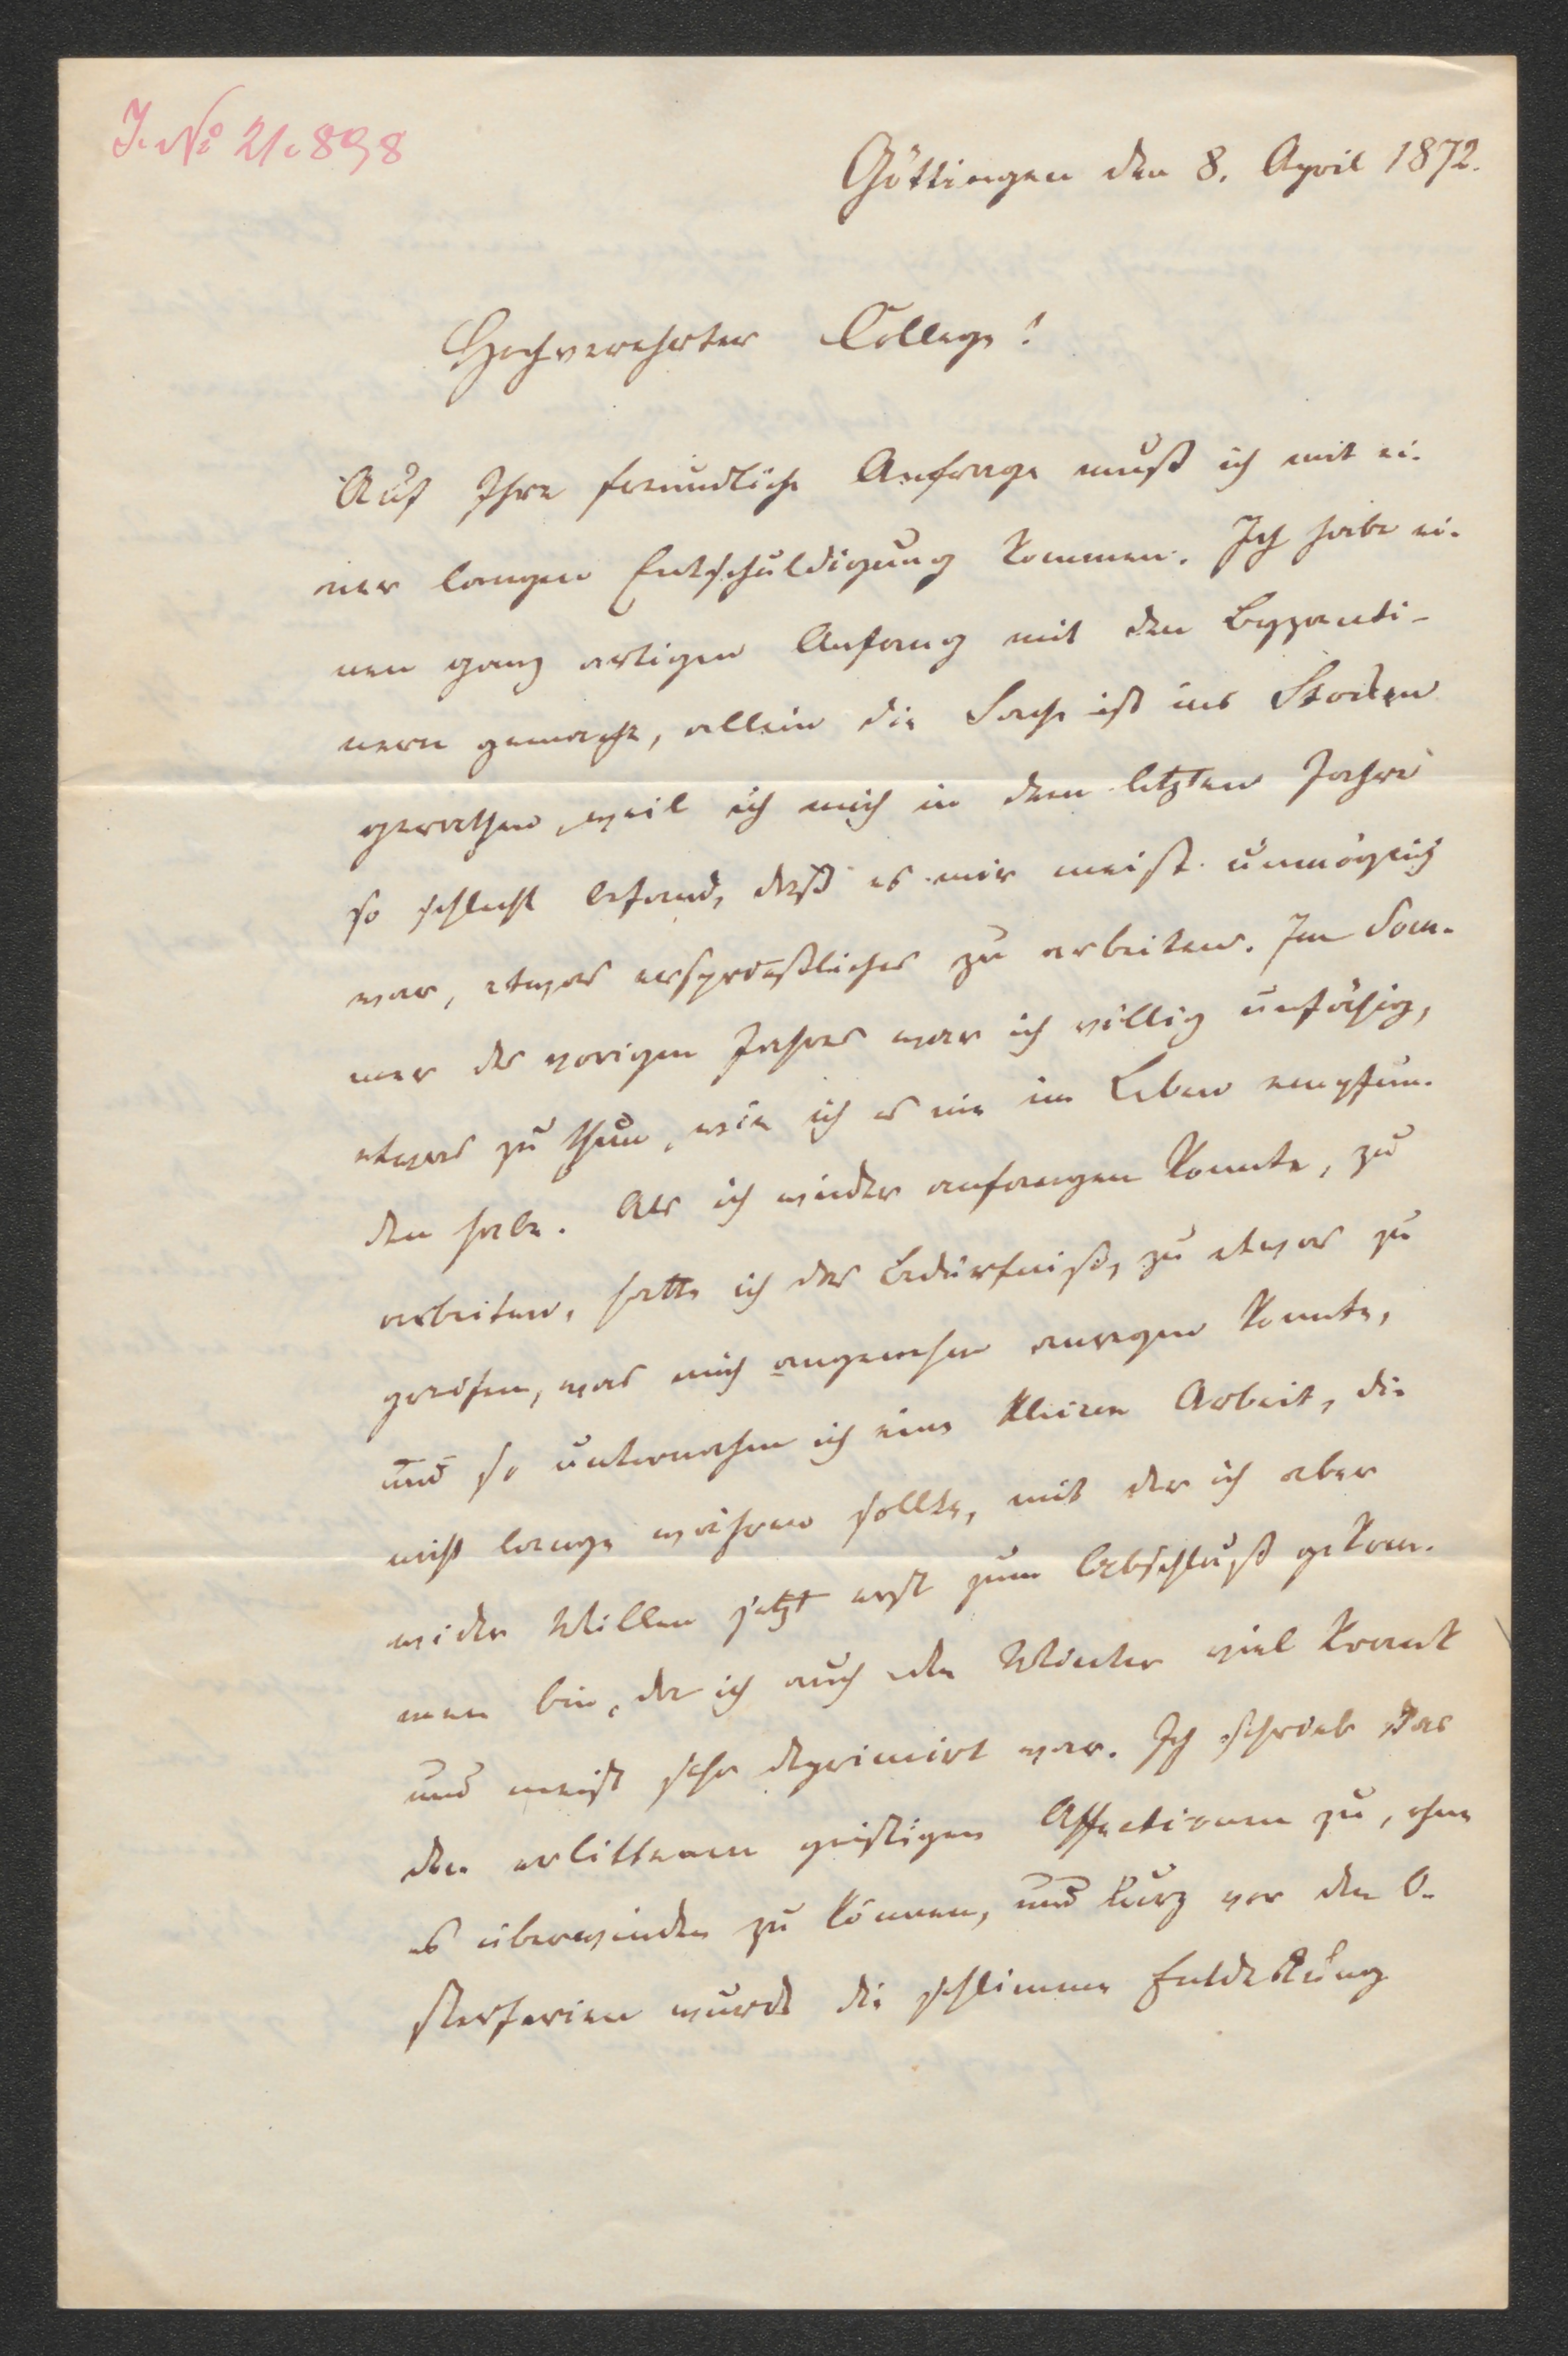 J. No 21.898
Göttingen den 8. April 1872.
Hochverehrter College!
Auf Ihre freundliche Anfrage muß ich mit ei-
ner langen Entschuldigung kommen. Ich habe ei-
nen ganz artigen Anfang mit den Byzanti-
nern gemacht, allein die Sache ist ins Stocken
gerathen, weil ich mich in dem letzten Jahre
so schlecht befand, daß es mir meist unmöglich
war, etwas ersprießliches zu arbeiten. Im Som-
mer des vorigen Jahres war ich völlig unfähig,
etwas zu thun, wie ich es nie im Leben empfun-
den habe. Als ich wieder anfangen konnte, zu
arbeiten, hatte ich das Bedürfniß, zu etwas zu
greifen, was mich angenehm anregen konnte,
und so unternahm ich eine kleine Arbeit, die
nicht lange währen sollte, mit der ich aber
wider Willen jetzt erst zum Abschluß gekom-
men bin, da ich auch den Winter viel krank
und meist sehr deprimirt war. Ich schrieb das
den erlittenen geistigen Affectionen zu, ohne
es überwinden zu können, und kurz vor den O-
sterferien wurde die schlimme Entdeckung